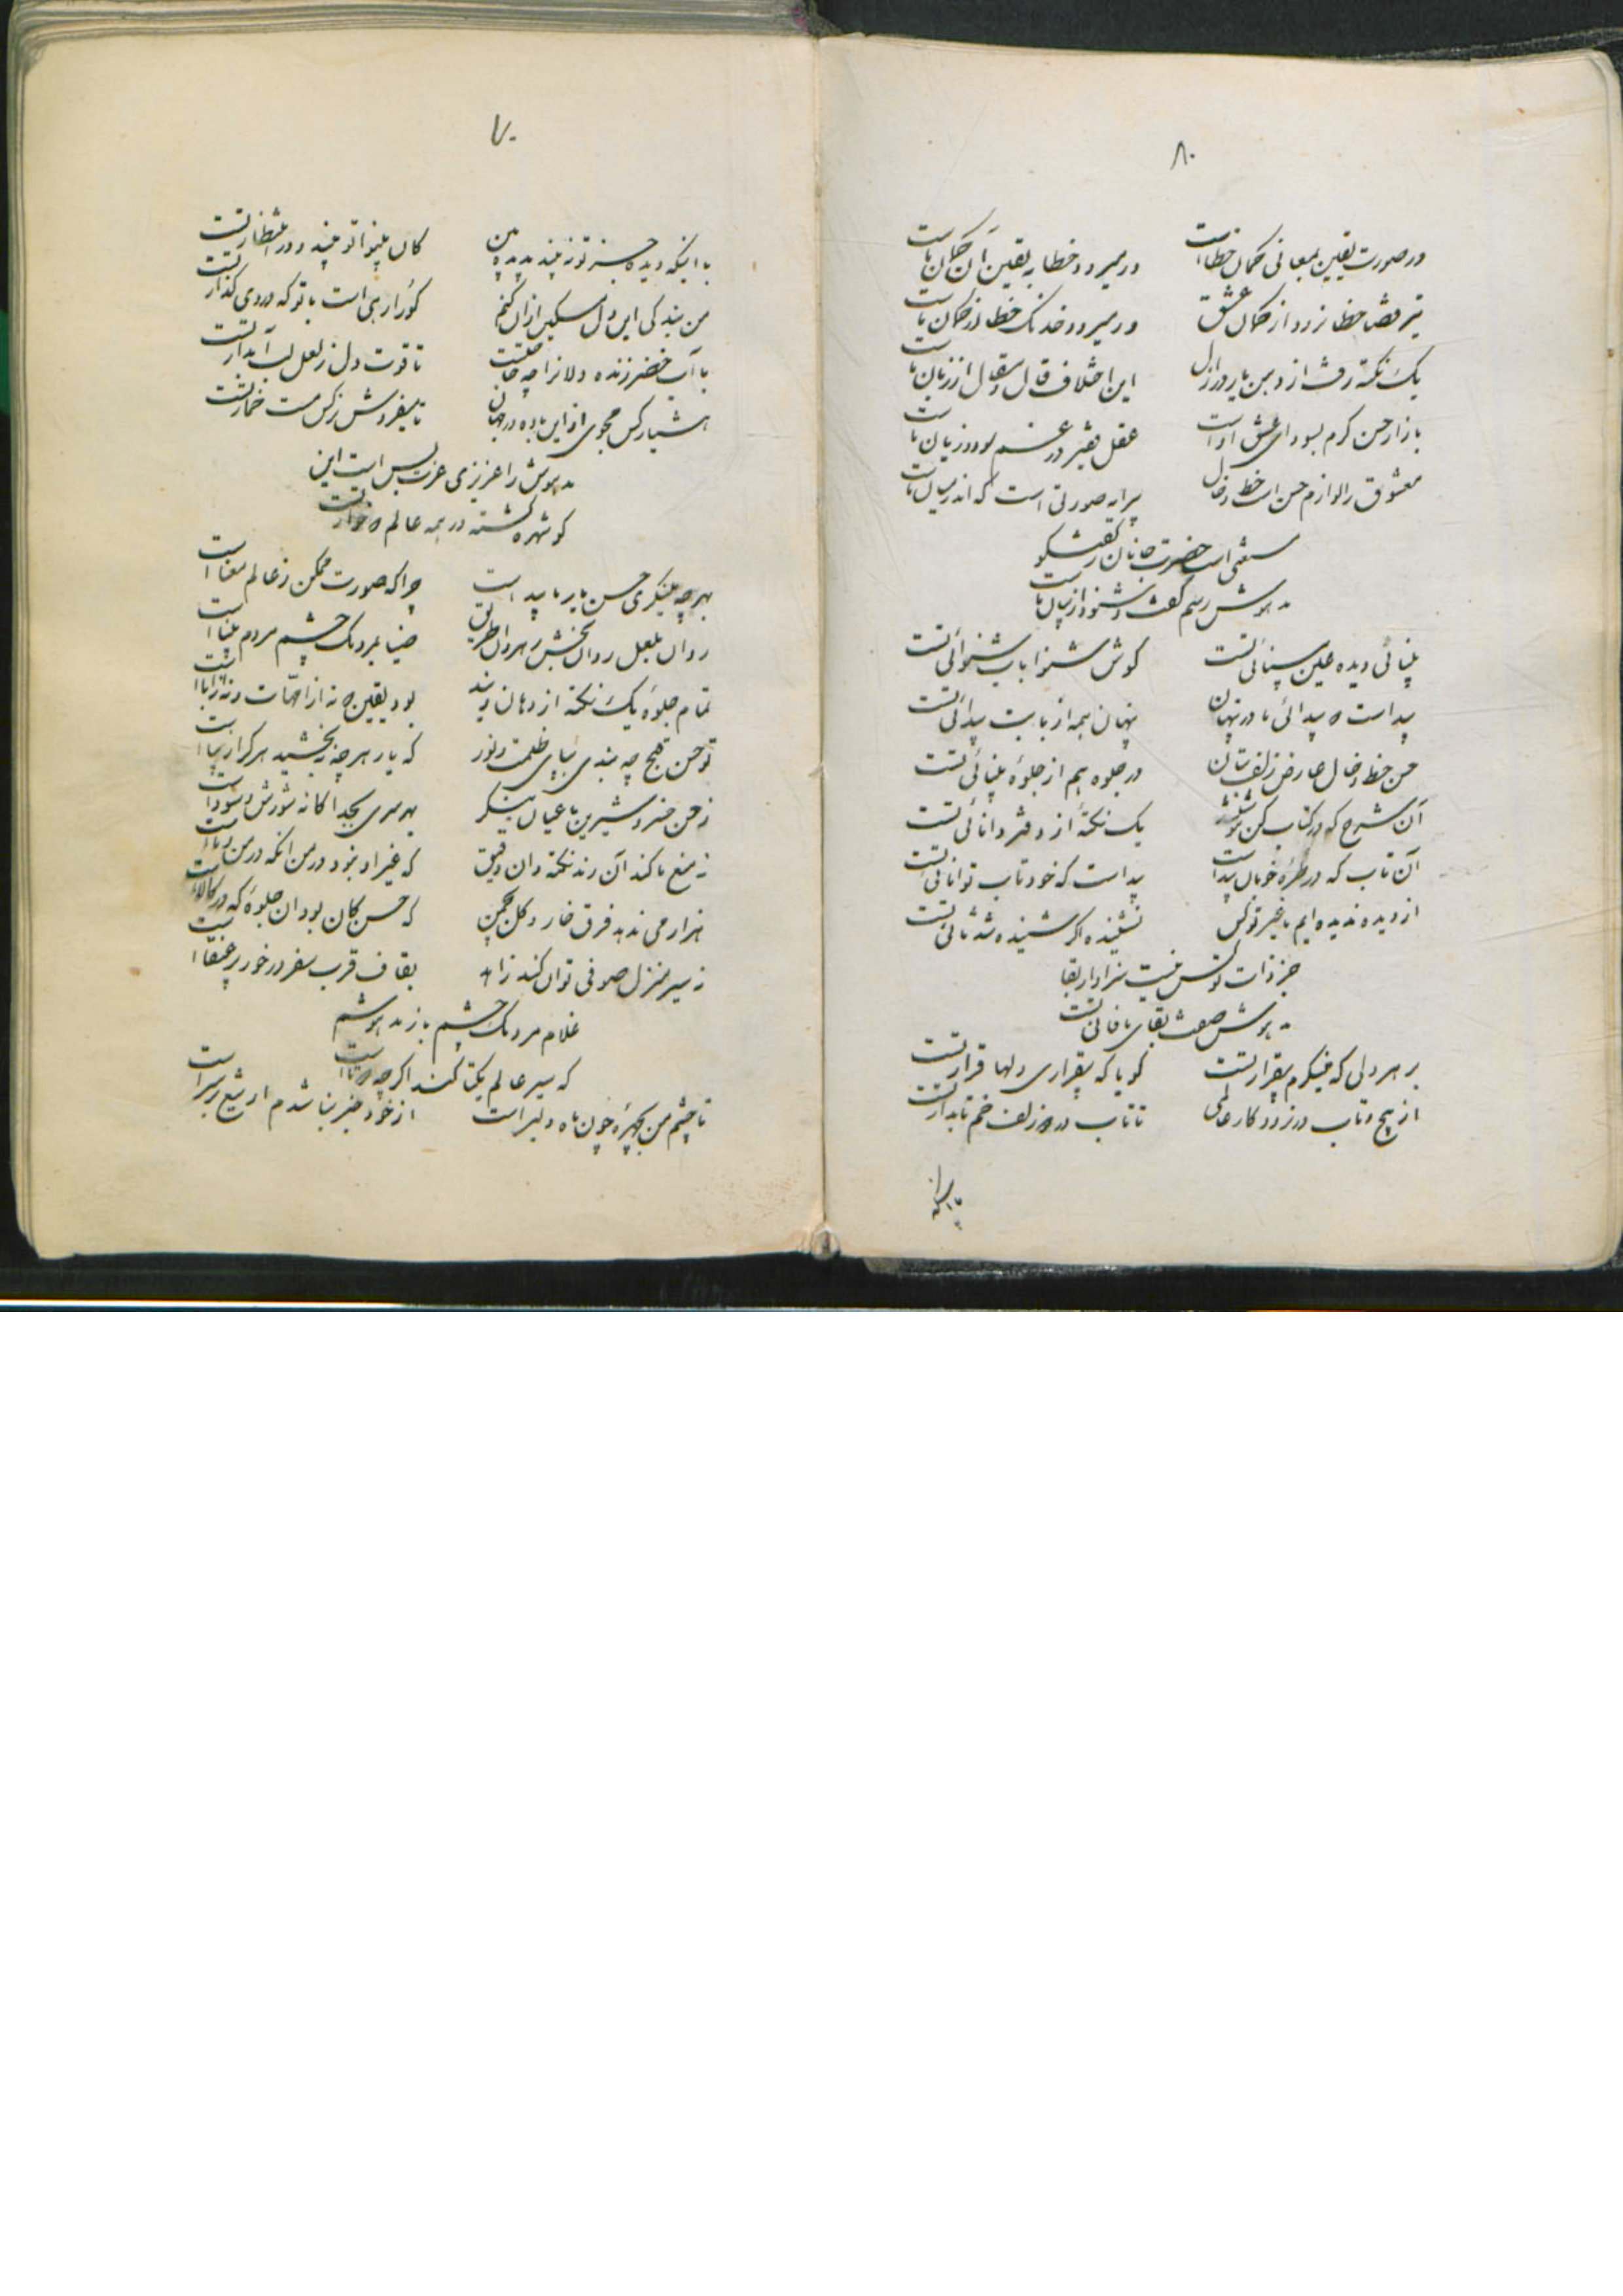 ۸۰
در صورت یقین بمعانی کمال خطاست
ور میرود خطا به یقین آن کمان ماست
تیر قضا خطا نرود از کمان عشق
ور میرود خدنگ خطا از کمان ماست
یک نکته رفت از دهن یار در ازل
این اختلاف قال و مقال از زبان ماست
بازار حسن گرم بسودای عشق اوست
عقل فقیر در غم سود و زیان ماست
معشوق را لوازم حسن است خط و خال
پیرایه صورتی است که اندر میان ماست
مستغنی است حضرت جانان ز گفتگو
مدهوش رسم گفت و شنود از بیان ماست
بینائی دیده عین بینائی تست
گوش شنوا باب شنوائی تست
پیداست ه پیدائی ما در پنهان
پنهان همه از بابت پیدائی تست
حسن خط و خال عارض و زلف بتان
در جلوه هم از جلوهٔ بینائی تست
آن شرح که در کتاب کن
یک نکته از دفتر دانائی تست
آن تاب که در طرهٔ خوبان پیداست
پیداست که خود تاب توانائی تست
از دیده ندیده ایم ما غیر تو کس
نشنیده اگر شنیده شد ثانی تست
جز ذات تو کس نیست سزاوار بقا
مدهوش صفت بقای ما فانی تست
بر هر دلی که مینگرم بیقرار تست
گویا که بیقراری دلها قرار تست
از پیچ و تاب در نرود کار عالمی
تا تاب در ه زلف خم تابدار تست
با اینکه
۷۰
با اینکه دیده جز تو نه بیند بدیده بین
کان بینوا تو بیند و در انتظار تست
من بندگی این دل مسکین از آن کنم
کو را رهی است با تو که در وی گذار تست
با آب خضر زنده دلانرا چه حاجت
تا قوت دل ز لعل لب آبدار تست
هشیار کس مجوی از این باده در جهان
تا میفروش نرگس مست خمار تست
مدهوش را عزیزی عزت بس است این
کو شهره گشته در همه عالم ه خوار تست
بهر چه مینگری حسن یار ما پیداست
چرا که صورت ممکن ز عالم معناست
روان بلعل روان بخش رهروان طریق
ضیا بمردمک چشم مردم بیناست
تمام جلوهٔ یک نکته از دهان ویند
بود یقین ه نه از امهات و نه ز آباست
تو حسن و قبح چه بندی بپای ظلمت و نور
که یار هر چه ببخشید هر کرا زیباست
ز حسن خسرو شیرین ما عیان بنگر
بهر سری بجداگانه شورش و سوداست
نه منع ما کند آن رند نکته دان دقیق
که غیر او نبود در من آنکه در من و ماست
هزار می ندهد فرق خار و گل بچمن
که حسن کان بود آن جلوهٔ که در کالاست
نه سیر منزل صوفی توان کند زاهد
بقاف قرب سفر در خور پر عنقاست
غلام مردمک چشم باز مدهوشم
که سیر عالم یکتا کند اگر چه ه تاست
تا چشم من بچهرهٔ چون ماه دلبر است
از خود خبر نباشدم ار تیغ بر سر است